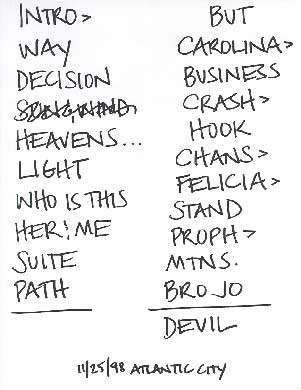 INTRO >
WAY
DECISION
HEAVENS...
LIGHT
WHO IS THIS
HER & ME
SUITE
PATH
BUT
CAROLINA >
BUSINESS
CRASH >
HOOK
CHANS >
FELICIA >
STAND
PROPH >
MTNS.
BRO JO
DEVIL
11/25/98 ATLANTIC CITY